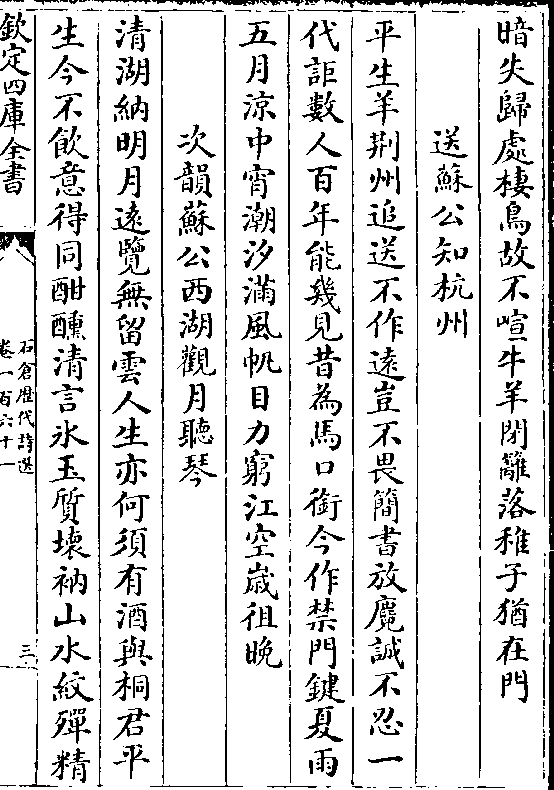 暗失歸處棲鳥故不喧牛羊閉籬落稚子猶在門
送蘇公知杭州
平生羊荆州追送不作遠豈不畏簡書放麑誠不忍一
代詎數人百年能幾見昔為馬口銜今作禁門鍵夏雨
五月涼中宵潮汐滿風帆目力窮江空嵗徂晚
次韻蘇公西湖觀月聽琴
清湖納明月遠覽無留雲人生亦何須有酒與桐君平
生今不飲意得同酣醺清言氷玉質壊衲山水紋殫精
欽定四庫全書
石倉歴代詩選
卷一百六十一
三